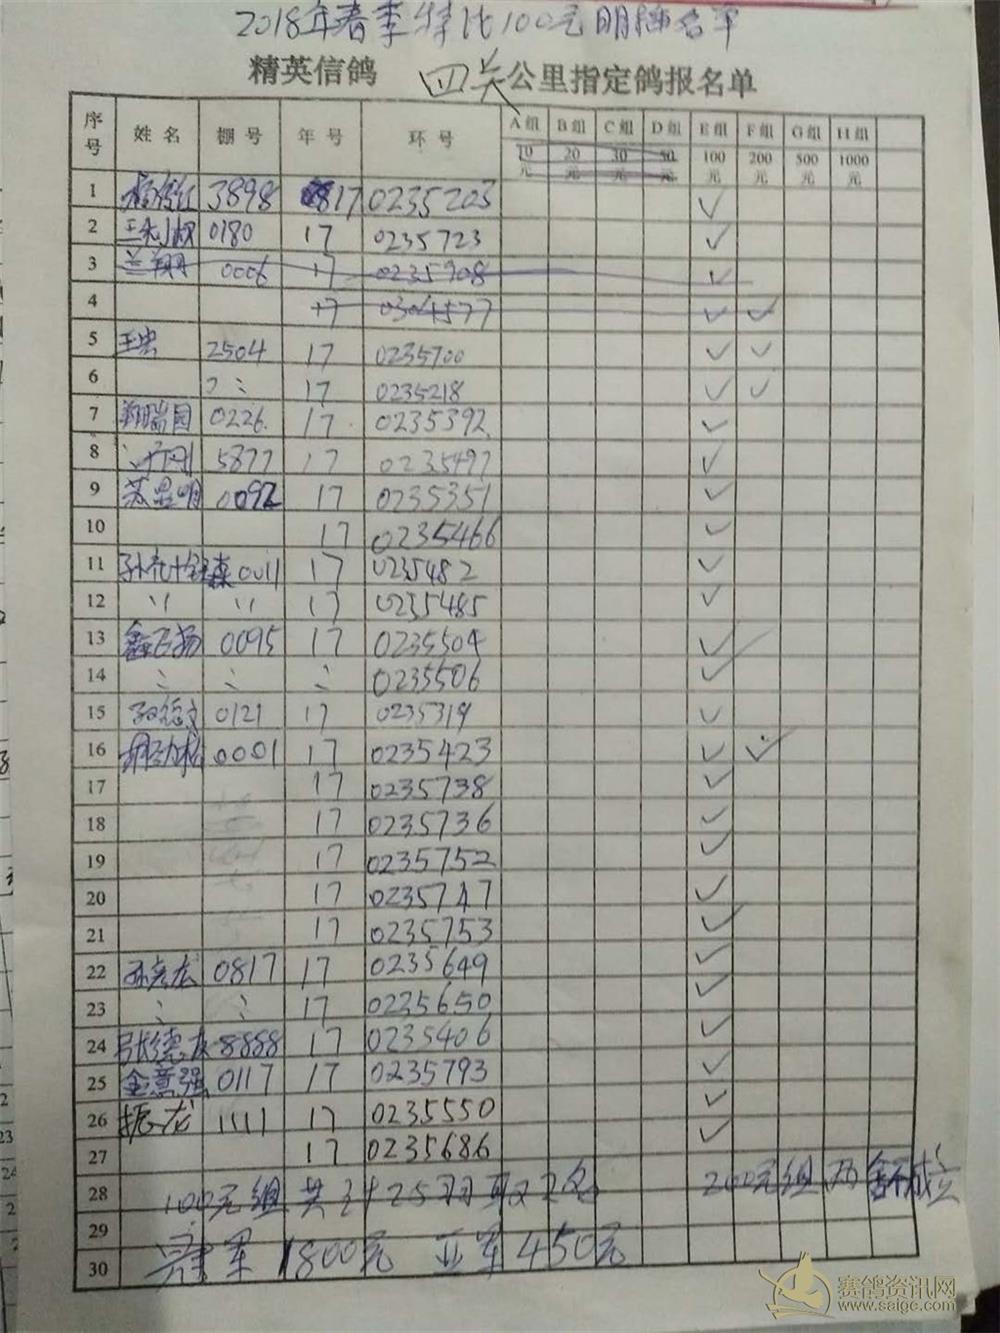 2018年春季特比100元明插名单
精英信鸽 四关公里指定鸽报名单
序号 姓名 棚号 年号 环号 A组 B组 C组 D组 E组 F组 G组 H组
10元 20元 30元 50元 100元 200元 500元 1000元
1 3898 17 0235203 ✓
2 0180 17 0235723 ✓
3 兰翔 0006 17 0235908 ✓
4 17 0304577 ✓ ✓
5 王忠 2504 17 0235700 ✓ ✓
6 〃 17 0235218 ✓ ✓
7 翔瑞园 0226 17 0235392 ✓
8 5877 17 0235497 ✓
9 苏显明 0092 17 0235351 ✓
10 17 0235466 ✓
11 0011 17 0235482 ✓
12 〃 〃 17 0235485 ✓
13 鑫飞扬 0095 17 0235504 ✓
14 〃 〃 〃 0235506 ✓
15 0121 17 0235319 ✓
16 胡劲松 0001 17 0235423 ✓ ✓
17 17 0235738 ✓
18 17 0235736 ✓
19 17 0235752 ✓
20 17 0235747 ✓
21 17 0235753 ✓
22 孙彦龙 0817 17 0235649 ✓
23 〃 〃 17 0235650 ✓
24 张德友 8888 17 0235406 ✓
25 金意强 0117 17 0235793 ✓
26 振龙 1111 17 0235550 ✓
27 17 0235686 ✓
28 100元组共计25羽取2名 200元组
29
30 冠军1800元 亚军450元
赛鸽资讯网
www.saigc.com